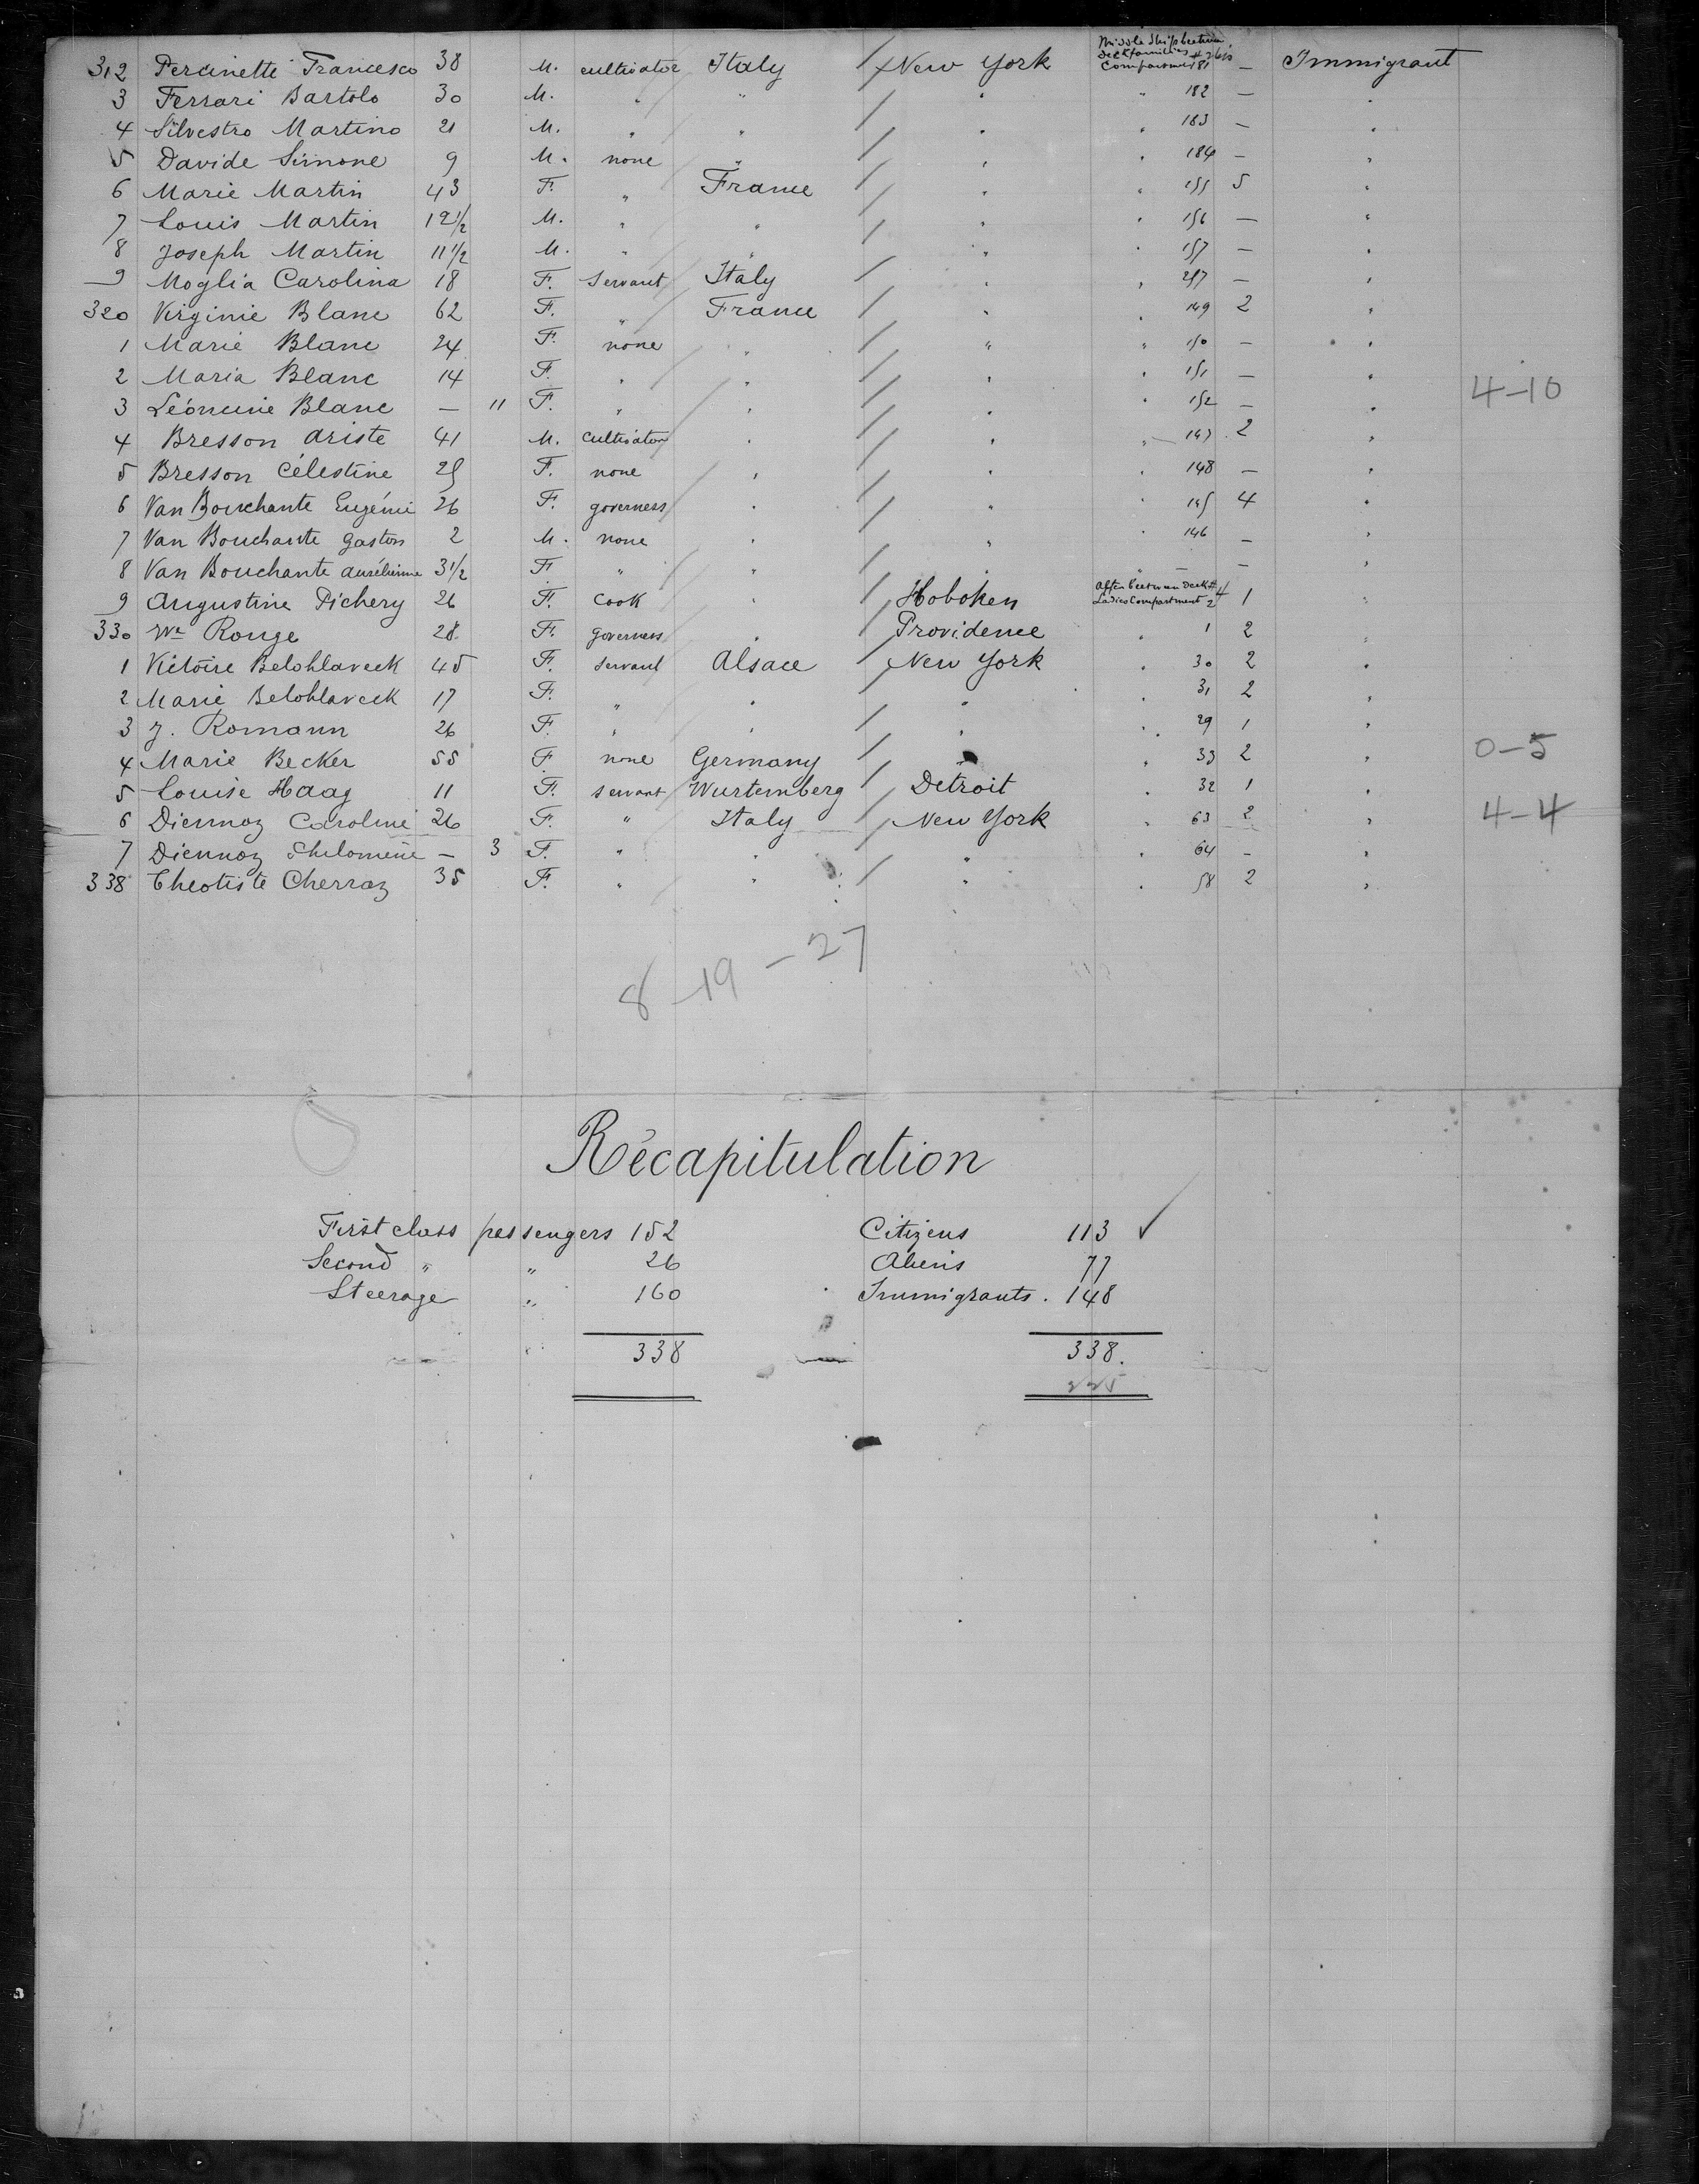 312 Percinetti Francesco 38 M. cultivator Italy New York Middle Ship between deck families Compartment 181 — Immigrant
3 Ferrari Bartolo 30 M. " " " " 182 — "
4 Silvestro Martino 21 M. " " " " 183 — "
5 Davide Simone 9 M. none " " " 184 — "
6 Marie Martin 43 F. " France " " 155 5 "
7 Louis Martin 12 1/2 M. " " " " 156 — "
8 Joseph Martin 11 1/2 M. " " " " 157 — "
9 Moglia Carolina 18 F. Servant Italy " " 257 — "
320 Virginie Blanc 62 F. " France " " 149 2 "
1 Marie Blanc 24 F. none " " " 150 — "
2 Maria Blanc 14 F. " " " " 151 — " 4-10
3 Léoncine Blanc — 11 F. " " " " 152 — "
4 Bresson Ariste 41 M. cultivator " " " 147 2 "
5 Bresson Célestine 25 F. none " " " 148 — "
6 Van Bouchante Eugénie 26 F. governess " " " 145 4 "
7 Van Bouchante Gaston 2 M. none " " " 146 — "
8 Van Bouchante Aurélienne 3 1/2 F " " " " — — "
9 Augustine Pichery 26 F. Cook " Hoboken After between deck #4 Ladies Compartment 2 1 "
330 Wve Rouge 28 F. governess " Providence " 1 2 "
1 Victoire Belohlaveck 45 F. servant Alsace New York " 30 2 "
2 Marie Belohlaveck 17 F. " " " " 31 2 "
3 J. Romann 26 F. " " " " 29 1 "
4 Marie Becker 55 F none Germany " " 33 2 " 0-5
5 Louise Haag 11 F. servant Wurtemberg Detroit " 32 1 "
6 Diennoz Caroline 26 F. " Italy New York " 63 2 " 4-4
7 Diennoz Philomène — 3 F. " " " " 64 — "
338 Théotiste Cherraz 35 F. " " " " 58 2 "
8-19-27
Récapitulation
First class passengers 152 Citizens 113 ✓
Second " " 26 Aliens 77
Steerage " 160 Immigrants. 148
338 338.
225